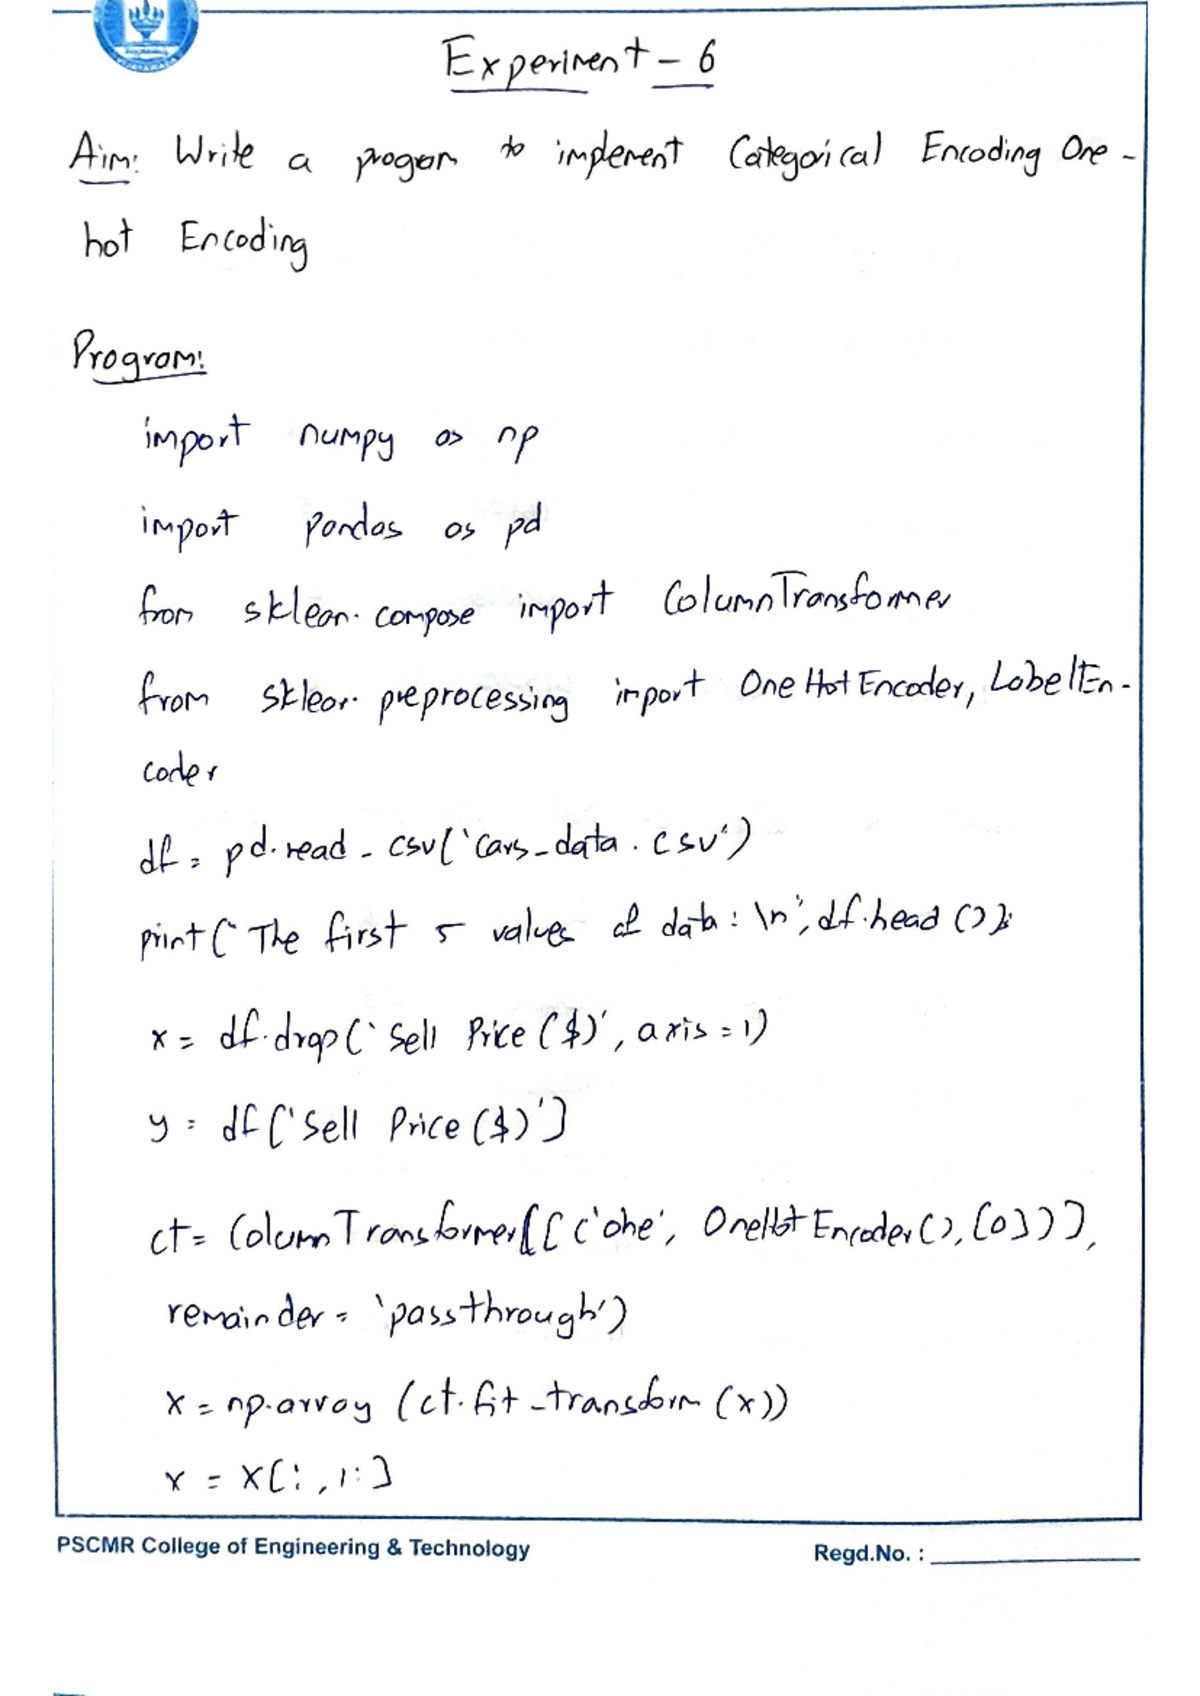 Experiment - 6
Aim: Write a progam to implement Categorical Encoding One-
hot Encoding
Program:
import numpy as np
import pandas as pd
from sklean.compose import ColumnTransformer
from sklear.preprocessing import OneHotEncoder, LabelEn-
coder
df = pd.read_csv('Cars_data.csv')
print('The first 5 values of data: \n', df.head());
x = df.drop('Sell Price ($)', axis=1)
y = df['Sell Price ($)']
ct = ColumnTransformer([('ohe', OneHotEncoder(), [0])],
remainder = 'passthrough')
x = np.array (ct.fit_transform (x))
x = x[:, 1:]
PSCMR College of Engineering & Technology
Regd.No. :